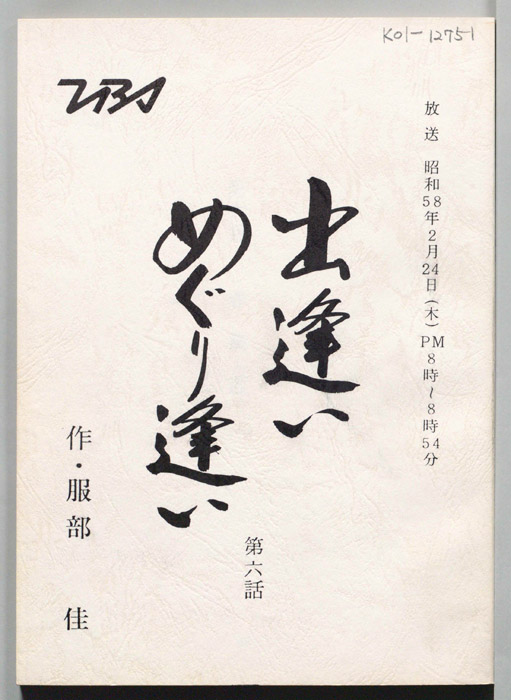 K01-12751
TBS
放送 昭和58年2月24日(木)PM8時~8時54分
出逢い
めぐり逢い
第六話
作・服部 佳